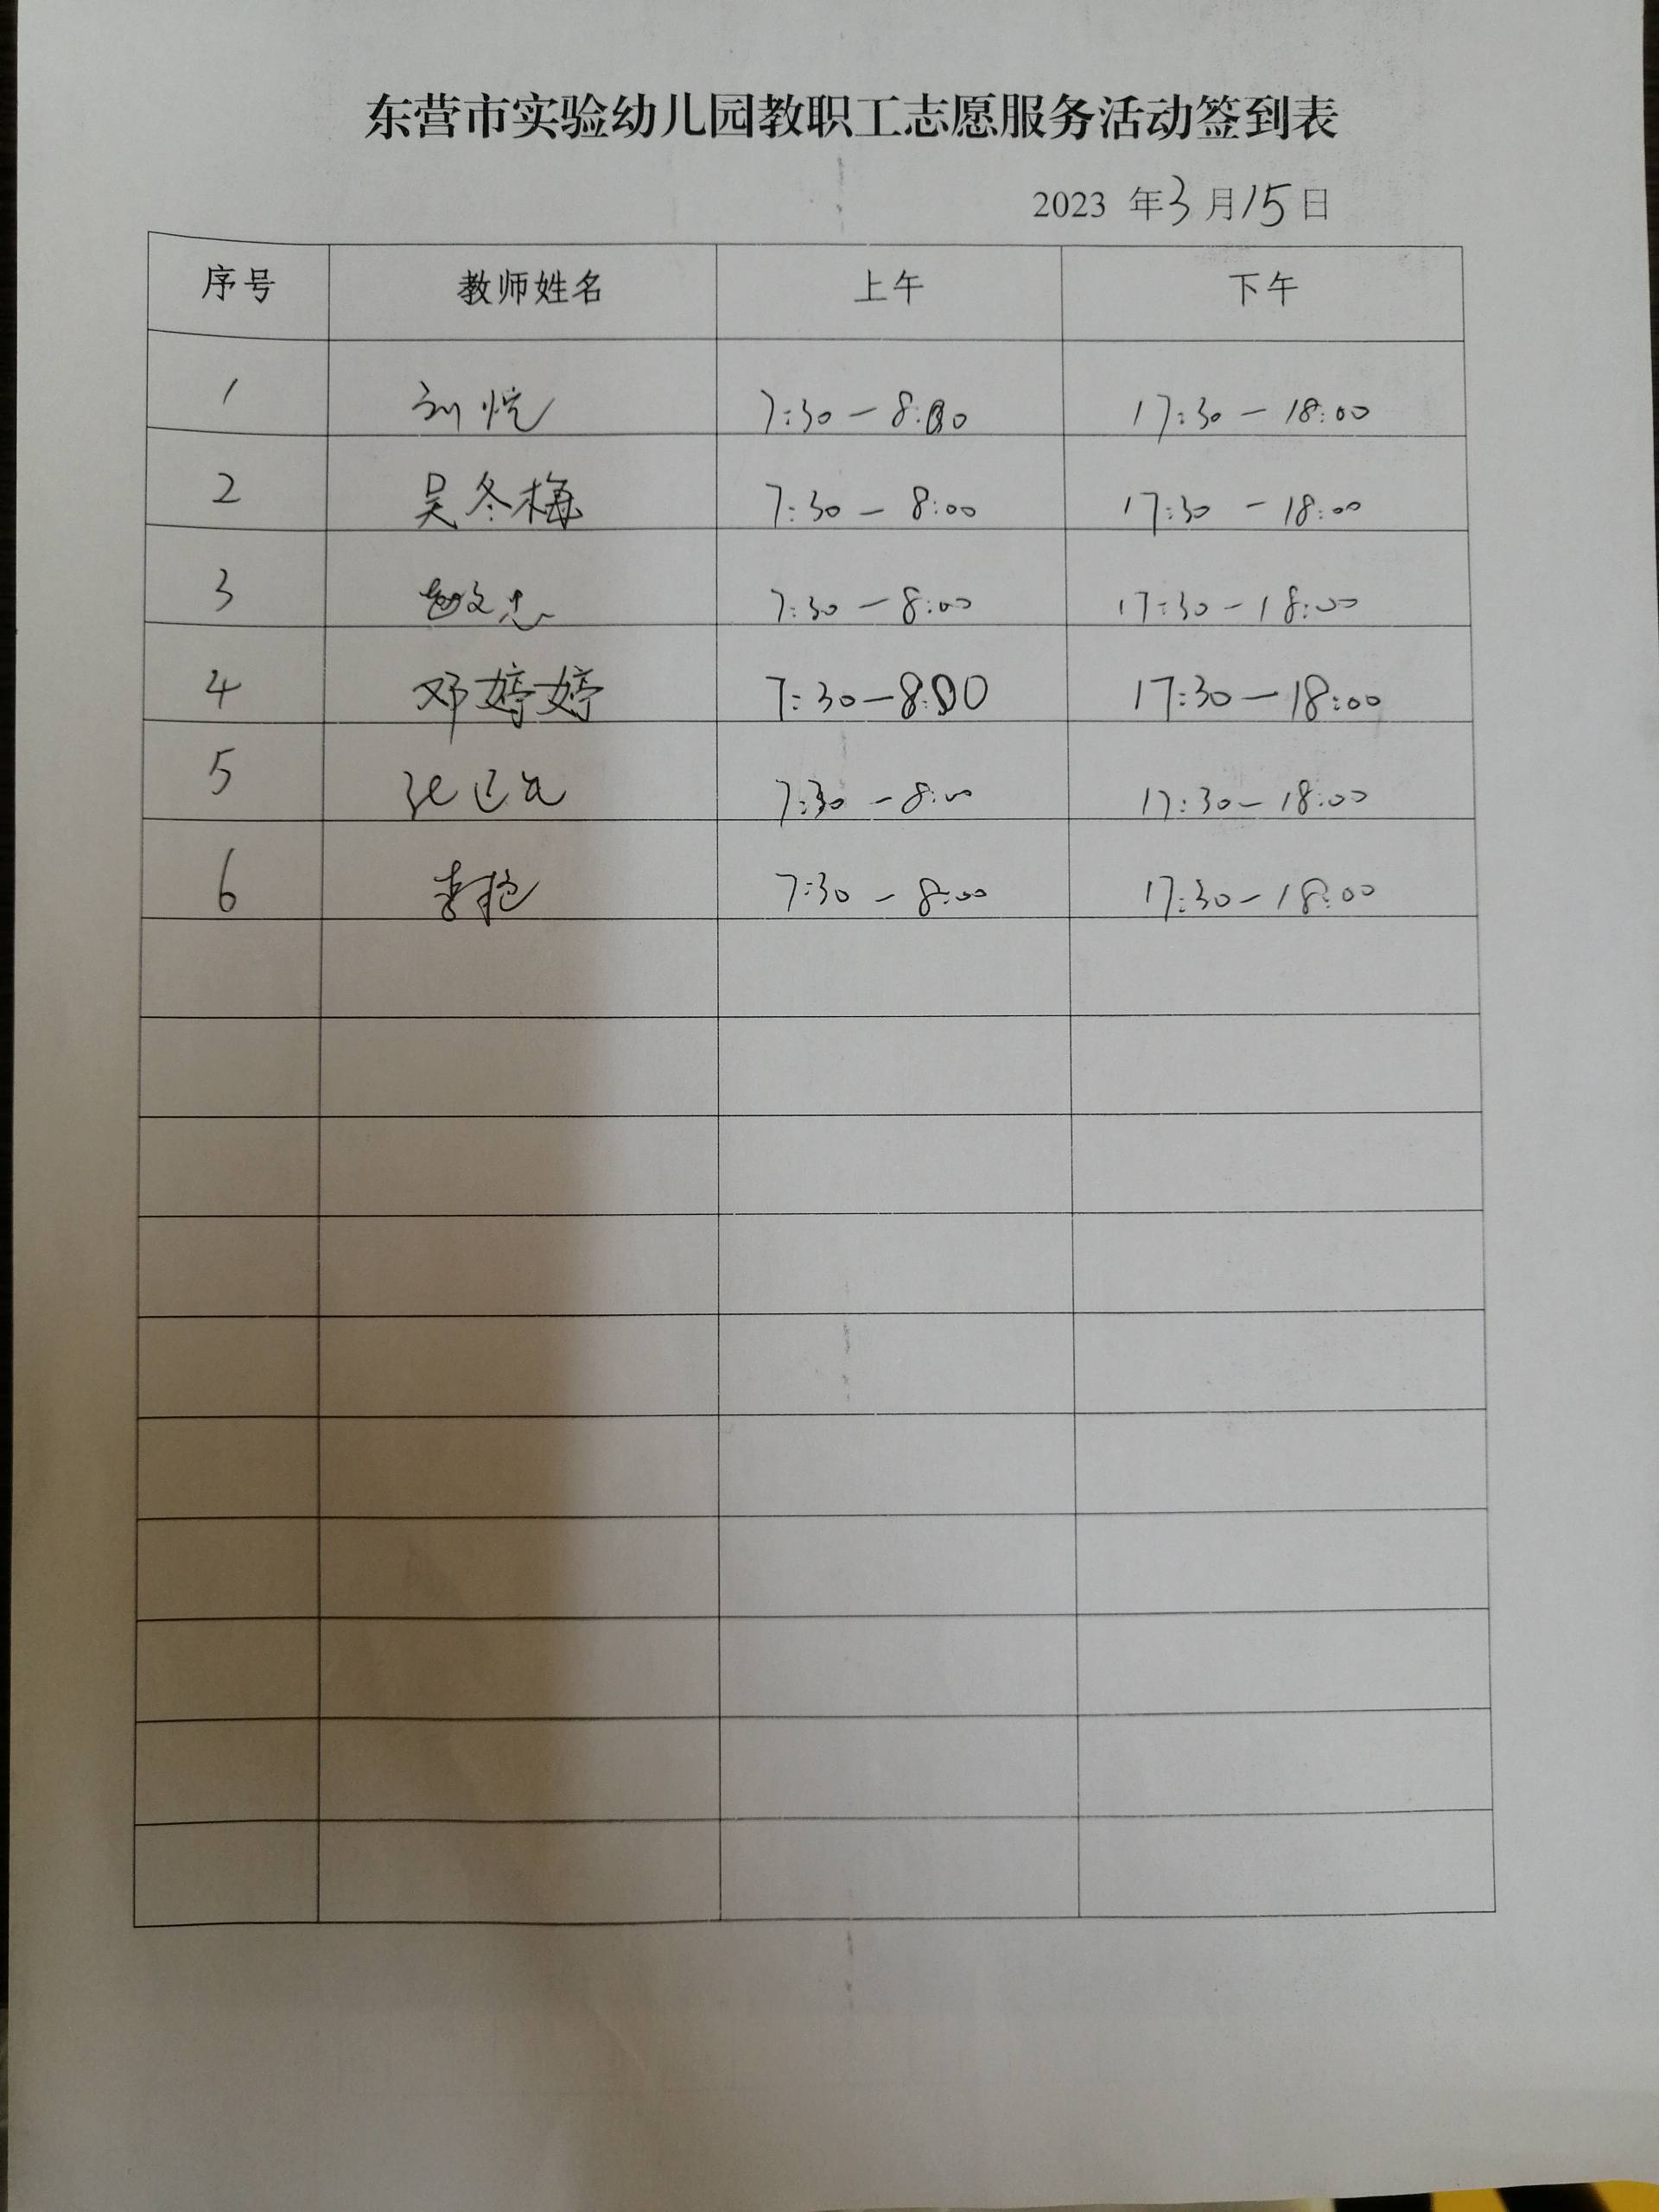 东营市实验幼儿园教职工志愿服务活动签到表
2023 年3月15日
序号 教师姓名 上午 下午
1 刘悦 7:30-8:00 17:30-18:00
2 吴冬梅 7:30-8:00 17:30-18:00
3 7:30-8:00 17:30-18:00
4 邓婷婷 7:30-8:00 17:30-18:00
5 7:30-8:00 17:30-18:00
6 李艳 7:30-8:00 17:30-18:00